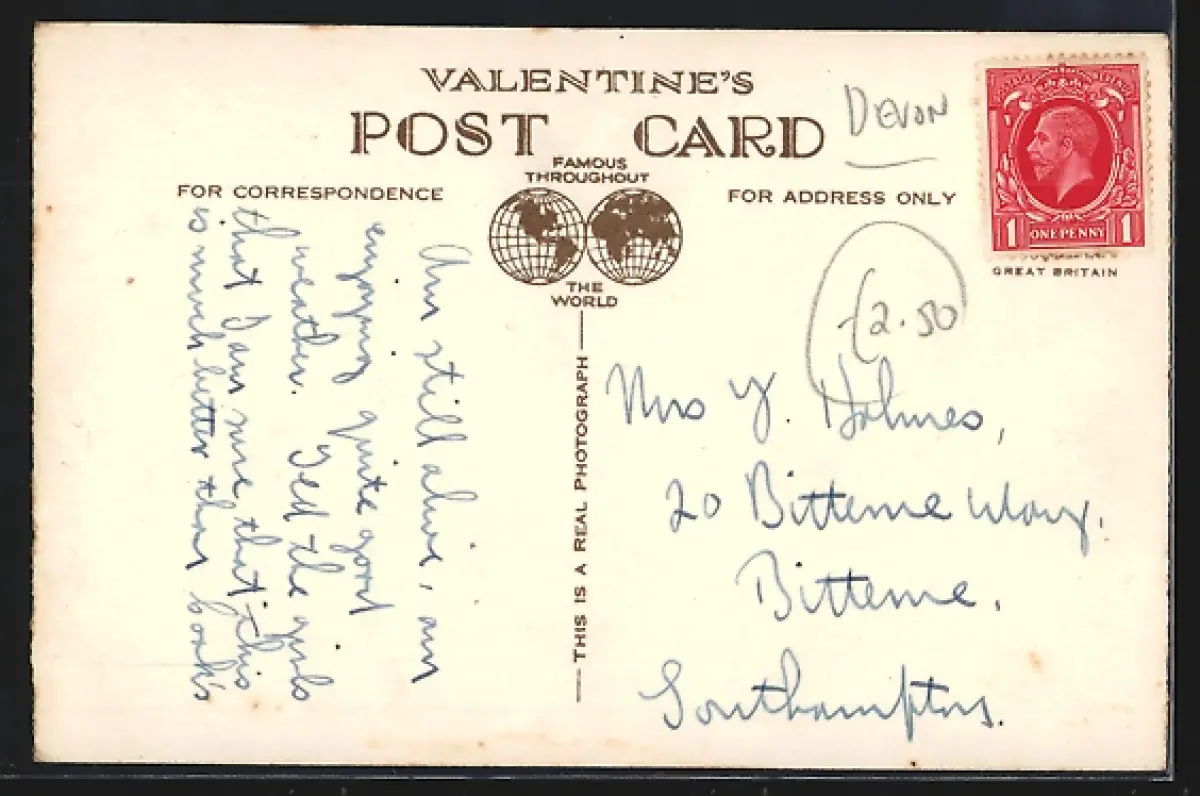 VALENTINE'S
POST CARD
FAMOUS
THROUGHOUT
THE
WORLD
FOR CORRESPONDENCE
FOR ADDRESS ONLY
THIS IS A REAL PHOTOGRAPH
DEVON
POSTAGE REVENUE
1 ONE PENNY 1
GREAT BRITAIN
£2.50
Am still alive, am
enjoying quite good
weather. Tell the girls
that I am sure that this
is much better than books
Mrs Y. Holmes,
20 Bitterne Way,
Bitterne,
Southampton.